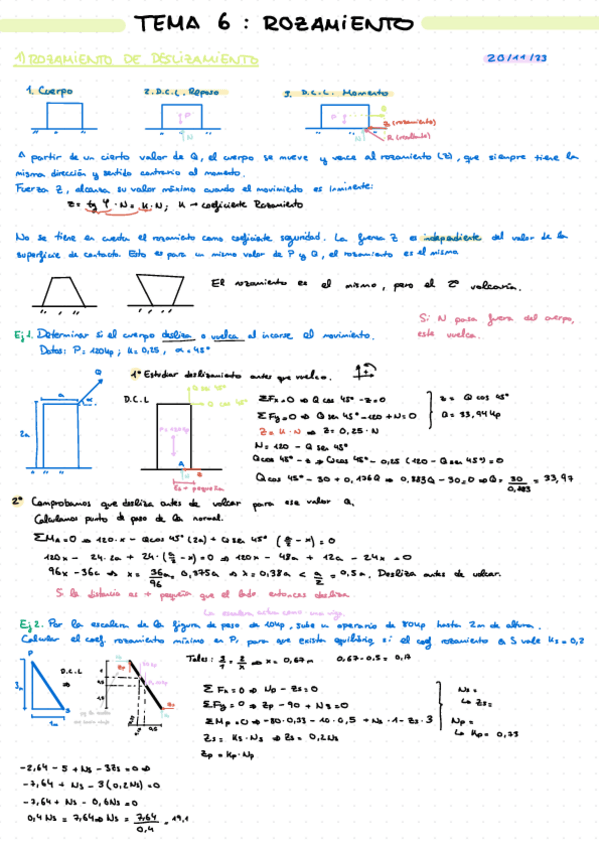 TEMA 6 : ROZAMIENTO
1) ROZAMIENTO DE DESLIZAMIENTO
20/11/23
1. Cuerpo
2. D.C.L. Reposo
3. D.C.L. Momento
P
N
P
Q
Z (rozamiento)
N
R (resultado)
A partir de un cierto valor de Q, el cuerpo se mueve y vence al rozamiento (Z), que siempre tiene la
misma dirección y sentido contrario al momento.
Fuerza Z, alcanza su valor máximo cuando el movimiento es inminente:
Z = tg φ · N = μ · N; μ → coeficiente Rozamiento
No se tiene en cuenta el rozamiento como coeficiente seguridad. La fuerza Z es independiente del valor de la
superficie de contacto. Esto es para un mismo valor de P y Q, el rozamiento es el mismo
El rozamiento es el mismo, pero el 2º volcaría.
Si N pasa fuera del cuerpo,
este vuelca.
Ej 1. Determinar si el cuerpo desliza o vuelca al iniciarse el movimiento.
Datos: P = 120kp ; μ = 0,25 , α = 45°
1º Estudiar deslizamiento antes que vuelco.
a
Q
α
2a
D.C.L
Q sen 45°
Q cos 45°
A
ΣFx=0 ⇒ Q cos 45° - Z = 0
ΣFy=0 ⇒ Q sen 45° - 120 + N = 0
Z = μ · N ⇒ Z = 0,25 · N
Z = Q cos 45°
Q = 33,94 kp
N = 120 - Q sen 45°
Q cos 45° - Z ⇒ Q cos 45° - 0,25 (120 - Q sen 45°) = 0
Q cos 45° - 30 + 0,176Q ⇒ 0,883Q - 30 = 0 ⇒ Q = 30/0,883 = 33,97
2º Comprobamos que desliza antes de volcar para ese valor Q.
Calculamos punto de paso de la normal.
ΣMA = 0 ⇒ 120·x - Q cos 45° (2a) + Q sen 45° (a/2 - x) = 0
120x - 24·2a + 24·(a/2 - x) = 0 ⇒ 120x - 48a + 12a - 24x = 0
96x - 36a ⇒ x = 36a/96 = 0,375a ⇒ x = 0,38a < a/2 = 0,5a. Desliza antes de volcar.
Si la distancia es + pequeña que el lado entonces desliza
La escalera actua como una viga.
Ej 2. Por la escalera de la figura de peso de 10kp, sube un operario de 80kp hasta 2m de altura.
Calcular el coef. rozamiento mínimo en P, para que exista equilibrio si el coef rozamiento a S vale μs = 0,2
P
3m
S
1m
D.C.L
⇒
Tales: 3/1 = 2/x ⇒ x = 0,67m
0,67-0,5 = 0,17
ΣFx=0 ⇒ Np - Zs = 0
ΣFy=0 ⇒ Zp - 90 + Ns = 0
ΣMp = 0 ⇒ -80·0,33 - 10·0,5 + Ns·1 - Zs·3
Zs = μs·Ns ⇒ Zs = 0,2Ns
Zp = μp·Np
Ns =
↳ Zs =
Np =
↳ μp = 0,73
-2,64 - 5 + Ns - 3Zs = 0 ⇒
-7,64 + Ns - 3(0,2Ns) = 0
-7,64 + Ns - 0,6Ns = 0
0,4Ns = 7,64 ⇒ Ns = 7,64/0,4 = 19,1